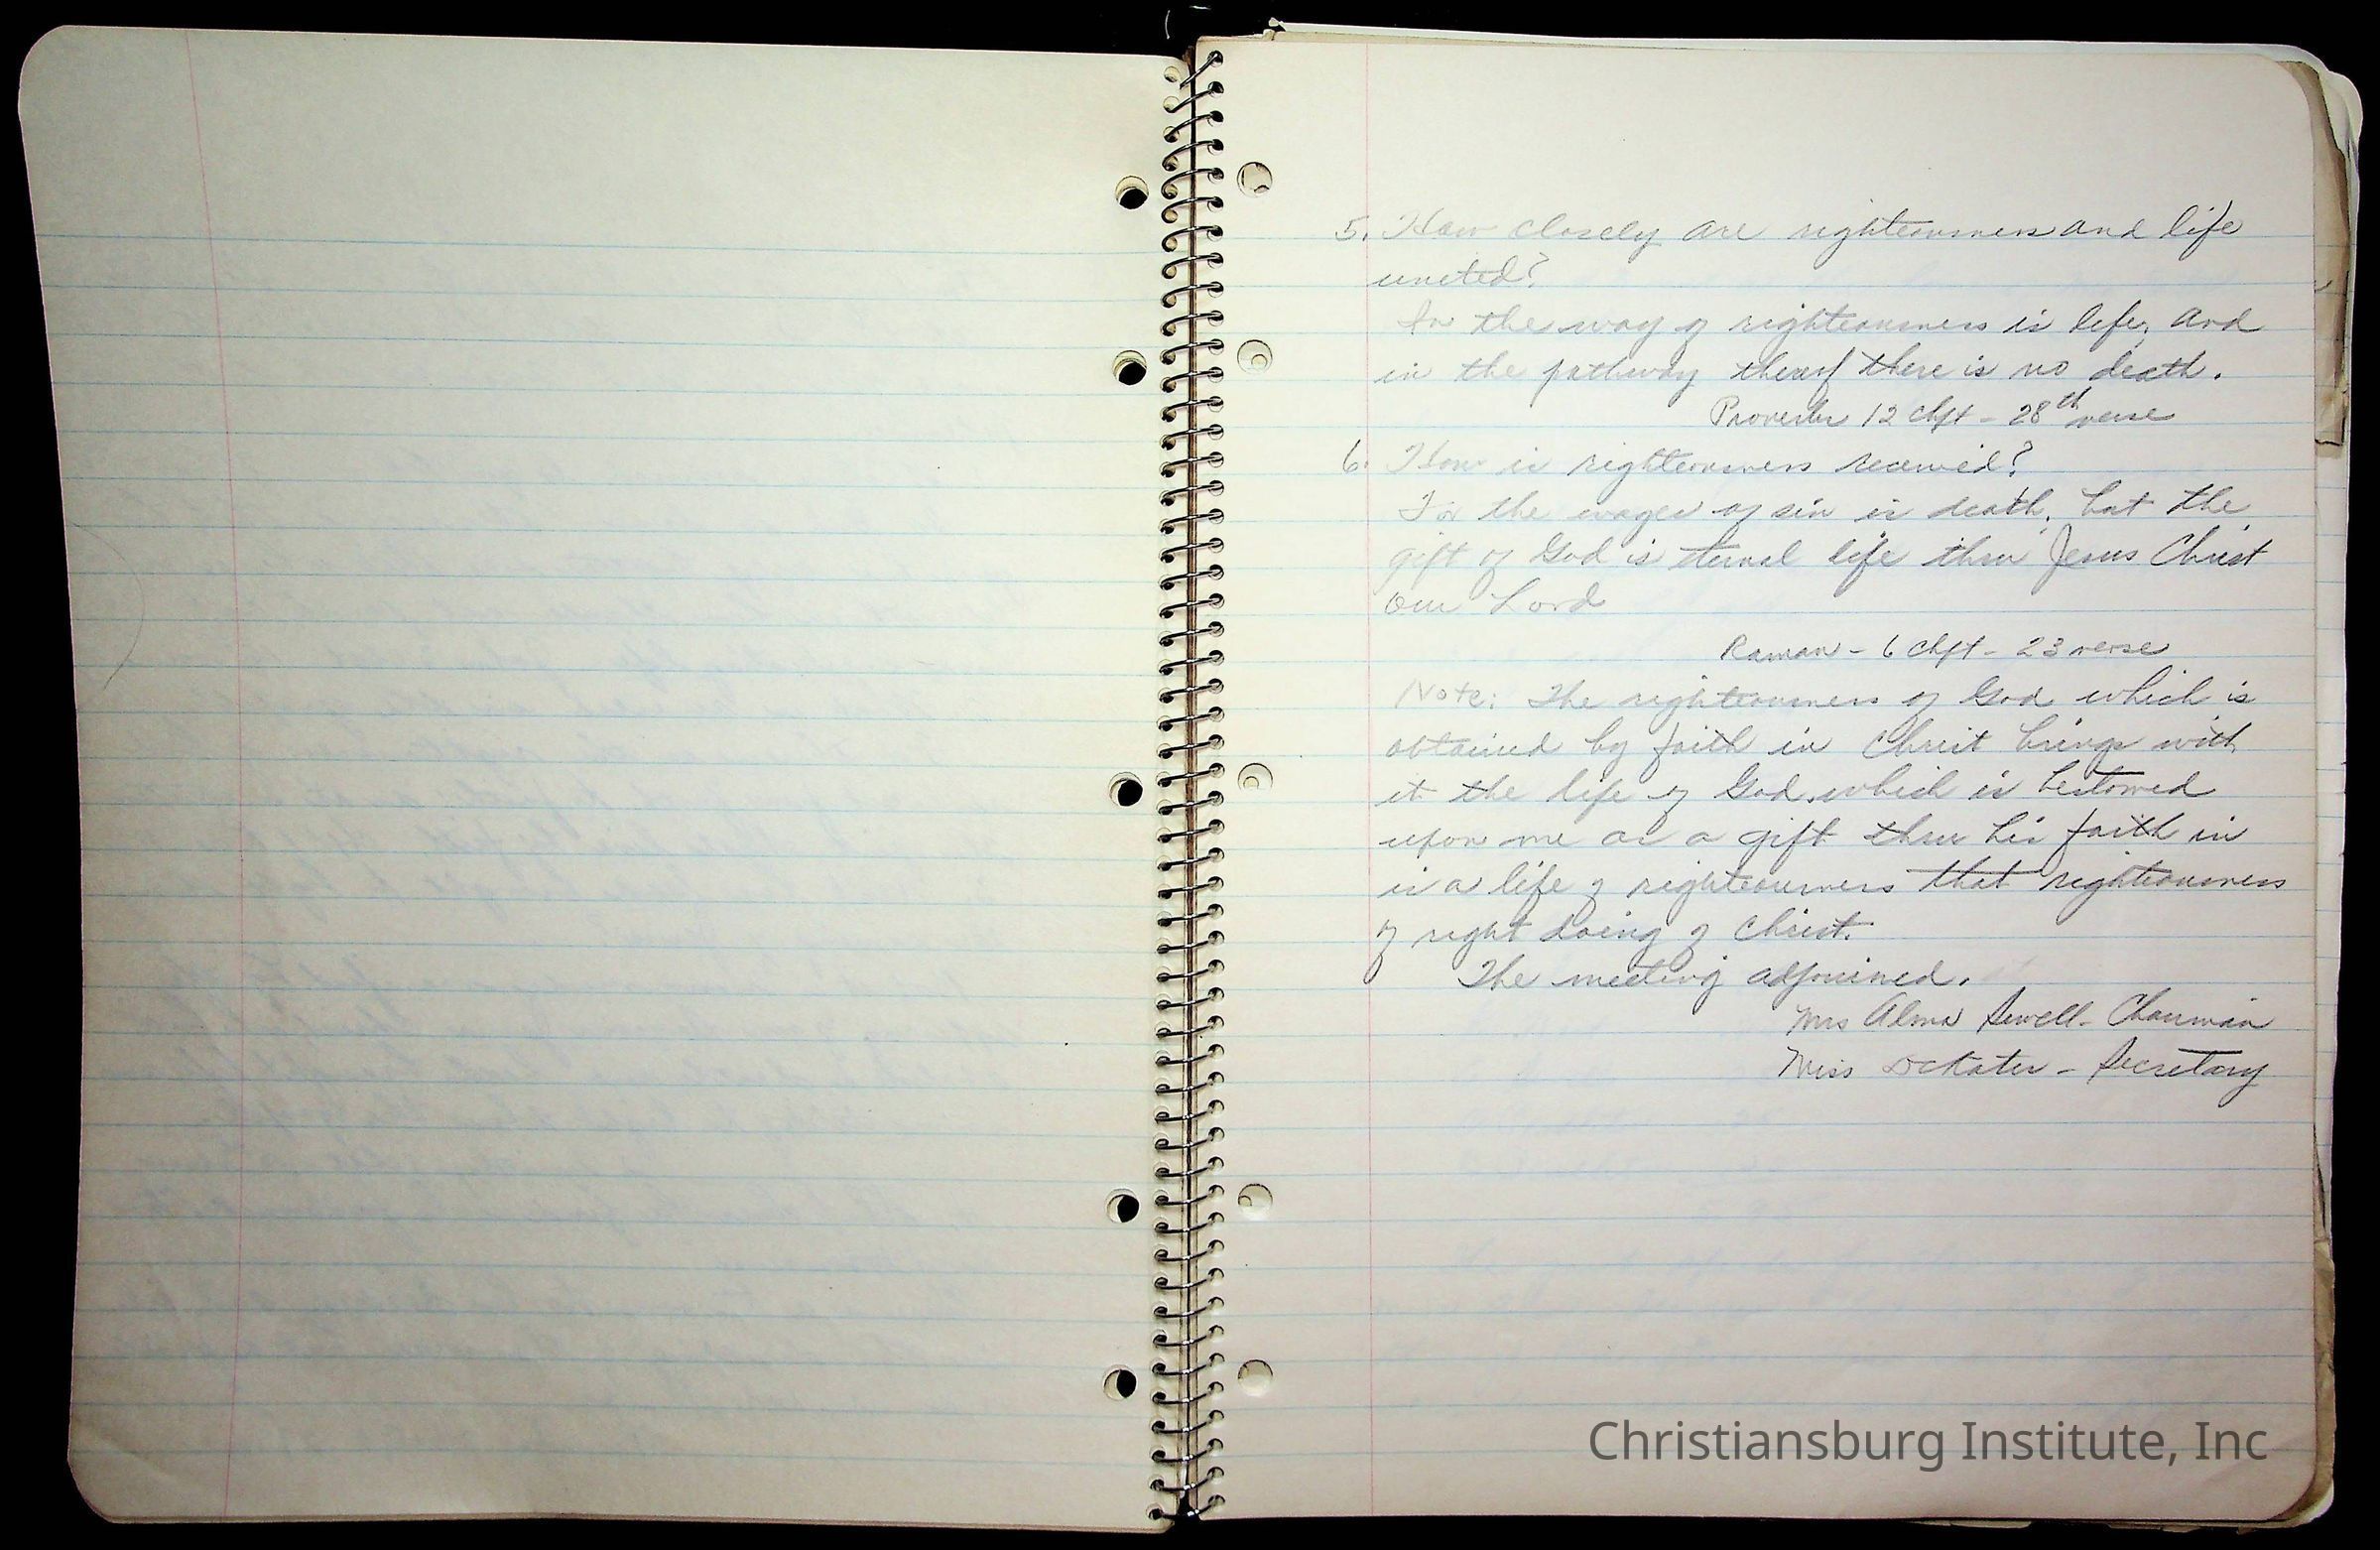 5. How closely are righteousness and life
united?
In the way of righteousness is life, and
in the pathway thereof there is no death.
Proverbs 12 chpt - 28th verse
6. How is righteousness received?
For the wages of sin is death, but the
gift of God is eternal life thru Jesus Christ
our Lord
Roman - 6 chpt - 23 verse
Note: The righteousness of God which is
obtained by faith in Christ brings with
it the life of God, which is bestowed
upon me as a gift thru his faith in
is a life of righteousness that righteousness
of right doing of Christ.
The meeting adjourned.
Mrs Alma Sewell - Chairman
Miss - Secretary
Christiansburg Institute, Inc